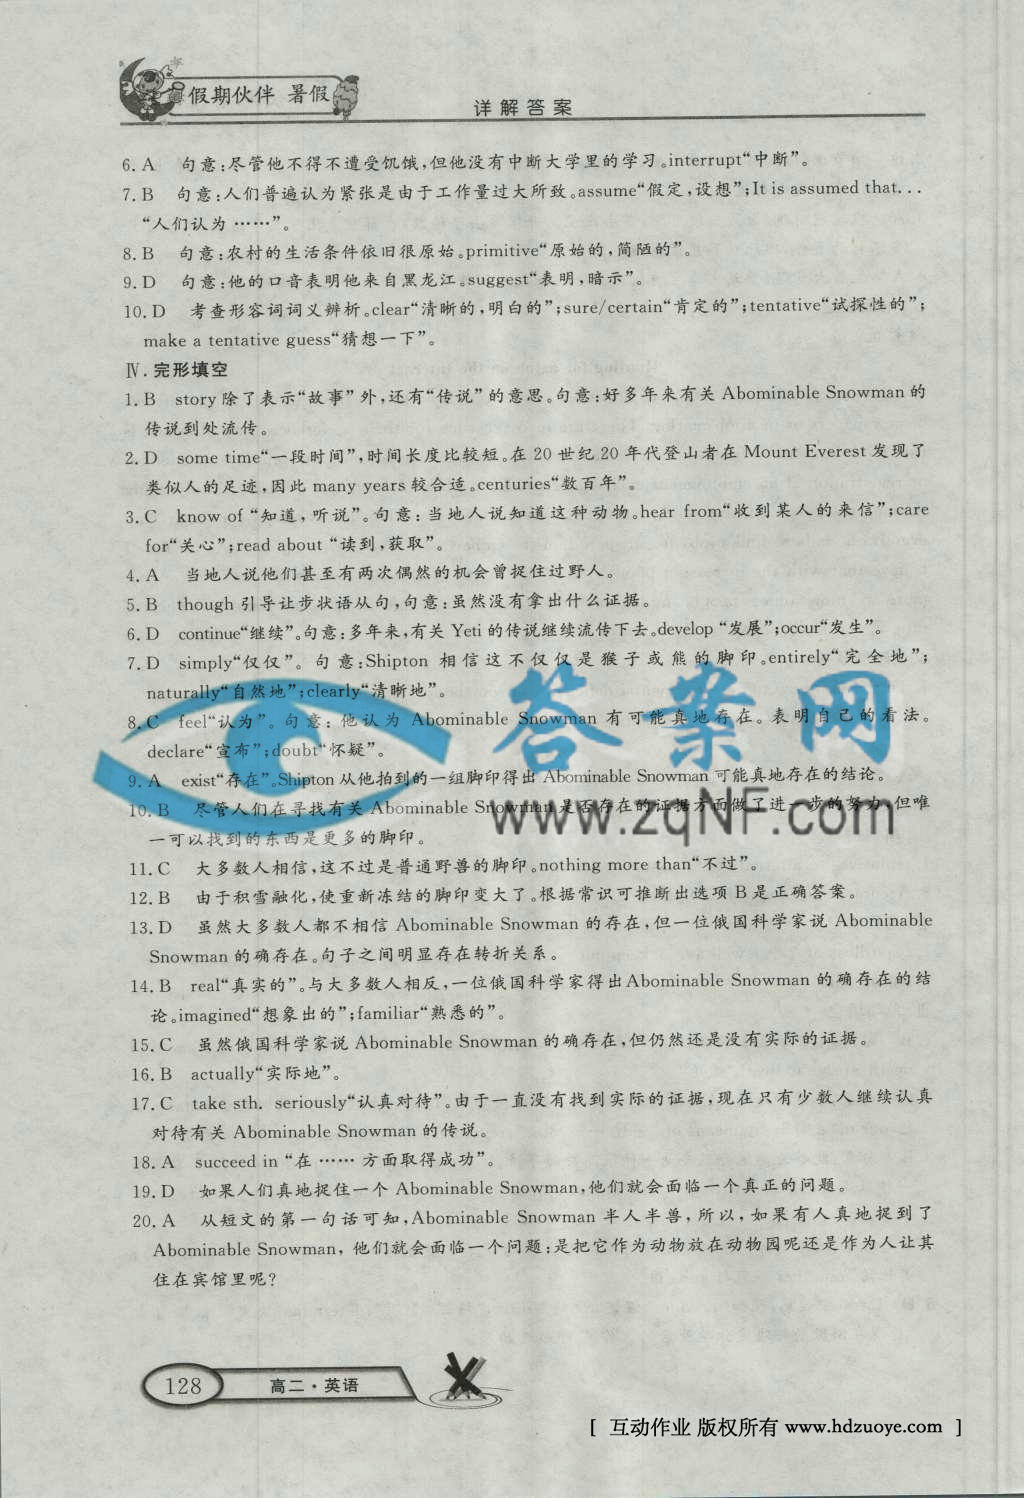 假期伙伴 暑假
详解答案
6. A 句意:尽管他不得不遭受饥饿,但他没有中断大学里的学习。interrupt“中断”。
7. B 句意:人们普遍认为紧张是由于工作量过大所致。assume“假定,设想”;It is assumed that...
“人们认为……”。
8. B 句意:农村的生活条件依旧很原始。primitive“原始的,简陋的”。
9. D 句意:他的口音表明他来自黑龙江。suggest“表明,暗示”。
10. D 考查形容词词义辨析。clear“清晰的,明白的”;sure/certain“肯定的”;tentative“试探性的”;
make a tentative guess“猜想一下”。
Ⅳ. 完形填空
1. B story 除了表示“故事”外,还有“传说”的意思。句意:好多年来有关 Abominable Snowman 的
传说到处流传。
2. D some time“一段时间”,时间长度比较短。在 20 世纪 20 年代登山者在 Mount Everest 发现了
类似人的足迹,因此 many years 较合适。centuries“数百年”。
3. C know of “知道,听说”。句意:当地人说知道这种动物。hear from“收到某人的来信”;care
for“关心”;read about “读到,获取”。
4. A 当地人说他们甚至有两次偶然的机会曾捉住过野人。
5. B though 引导让步状语从句,句意:虽然没有拿出什么证据。
6. D continue“继续”。句意:多年来,有关 Yeti 的传说继续流传下去。develop “发展”;occur“发生”。
7. D simply“仅仅”。句意:Shipton 相信这不仅仅是猴子或熊的脚印。entirely“完全地”;
naturally“自然地”;clearly“清晰地”。
8. C feel“认为”。句意:他认为 Abominable Snowman 有可能真地存在。表明自己的看法。
declare“宣布”;doubt“怀疑”。
9. A exist“存在”。Shipton 从他拍到的一组脚印得出 Abominable Snowman 可能真地存在的结论。
10. B 尽管人们在寻找有关 Abominable Snowman 是否存在的证据方面做了进一步的努力,但唯
一可以找到的东西是更多的脚印。
11. C 大多数人相信,这不过是普通野兽的脚印。nothing more than“不过”。
12. B 由于积雪融化,使重新冻结的脚印变大了。根据常识可推断出选项 B 是正确答案。
13. D 虽然大多数人都不相信 Abominable Snowman 的存在,但一位俄国科学家说 Abominable
Snowman 的确存在。句子之间明显存在转折关系。
14. B real“真实的”。与大多数人相反,一位俄国科学家得出 Abominable Snowman 的确存在的结
论。imagined“想象出的”;familiar“熟悉的”。
15. C 虽然俄国科学家说 Abominable Snowman 的确存在,但仍然还是没有实际的证据。
16. B actually“实际地”。
17. C take sth. seriously“认真对待”。由于一直没有找到实际的证据,现在只有少数人继续认真
对待有关 Abominable Snowman 的传说。
18. A succeed in “在……方面取得成功”。
19. D 如果人们真地捉住一个 Abominable Snowman,他们就会面临一个真正的问题。
20. A 从短文的第一句话可知,Abominable Snowman 半人半兽,所以,如果有人真地捉到了
Abominable Snowman, 他们就会面临一个问题:是把它作为动物放在动物园呢还是作为人让其
住在宾馆里呢?
答案网
www.zqNF.com
128
高二·英语
[ 互动作业 版权所有 www.hdzuoye.com ]